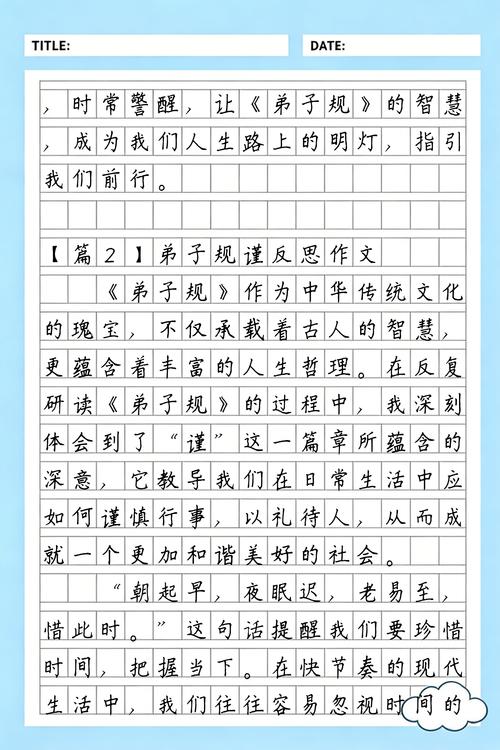 TITLE: DATE:
，时常警醒，让《弟子规》的智慧
，成为我们人生路上的明灯，指引
我们前行。
【篇2】弟子规谨反思作文
《弟子规》作为中华传统文化
的瑰宝，不仅承载着古人的智慧，
更蕴含着丰富的人生哲理。在反复
研读《弟子规》的过程中，我深刻
体会到了“谨”这一篇章所蕴含的
深意，它教导我们在日常生活中应
如何谨慎行事，以礼待人，从而成
就一个更加和谐美好的社会。
“朝起早，夜眠迟，老易至，
惜此时。”这句话提醒我们要珍惜
时间，把握当下。在快节奏的现代
生活中，我们往往容易忽视时间的